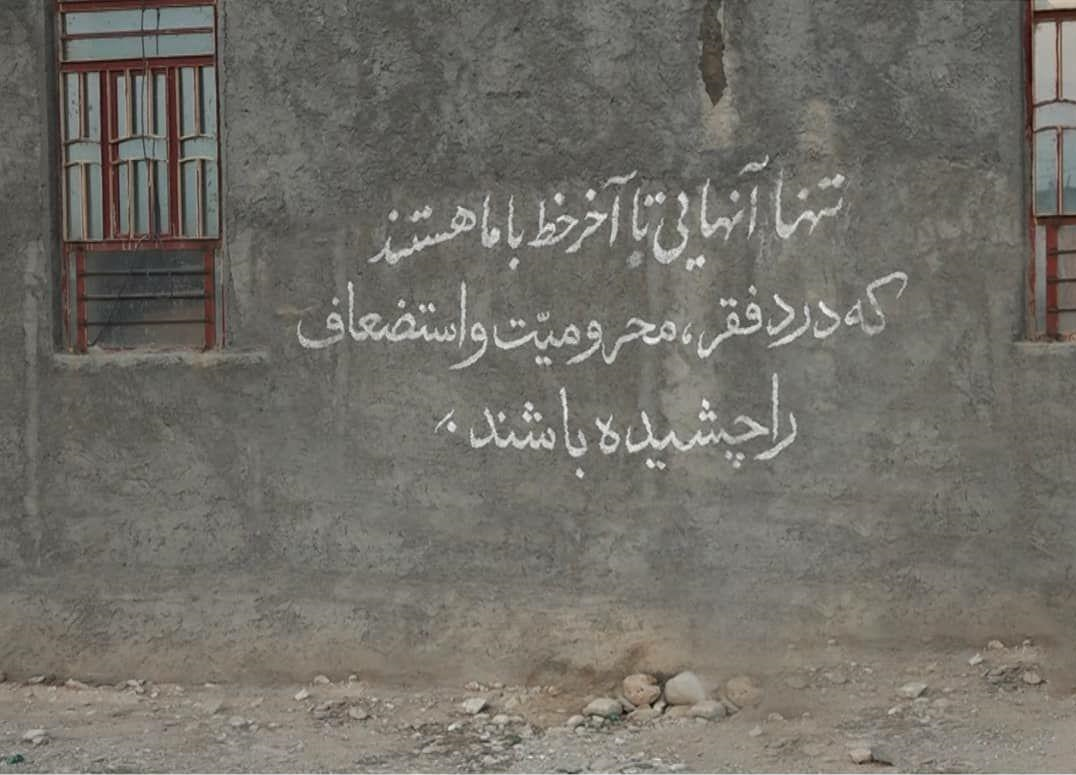 تنها آنهایی تا آخر خط با ما هستند
که درد فقر، محرومیّت و استضعاف
را چشیده باشند.